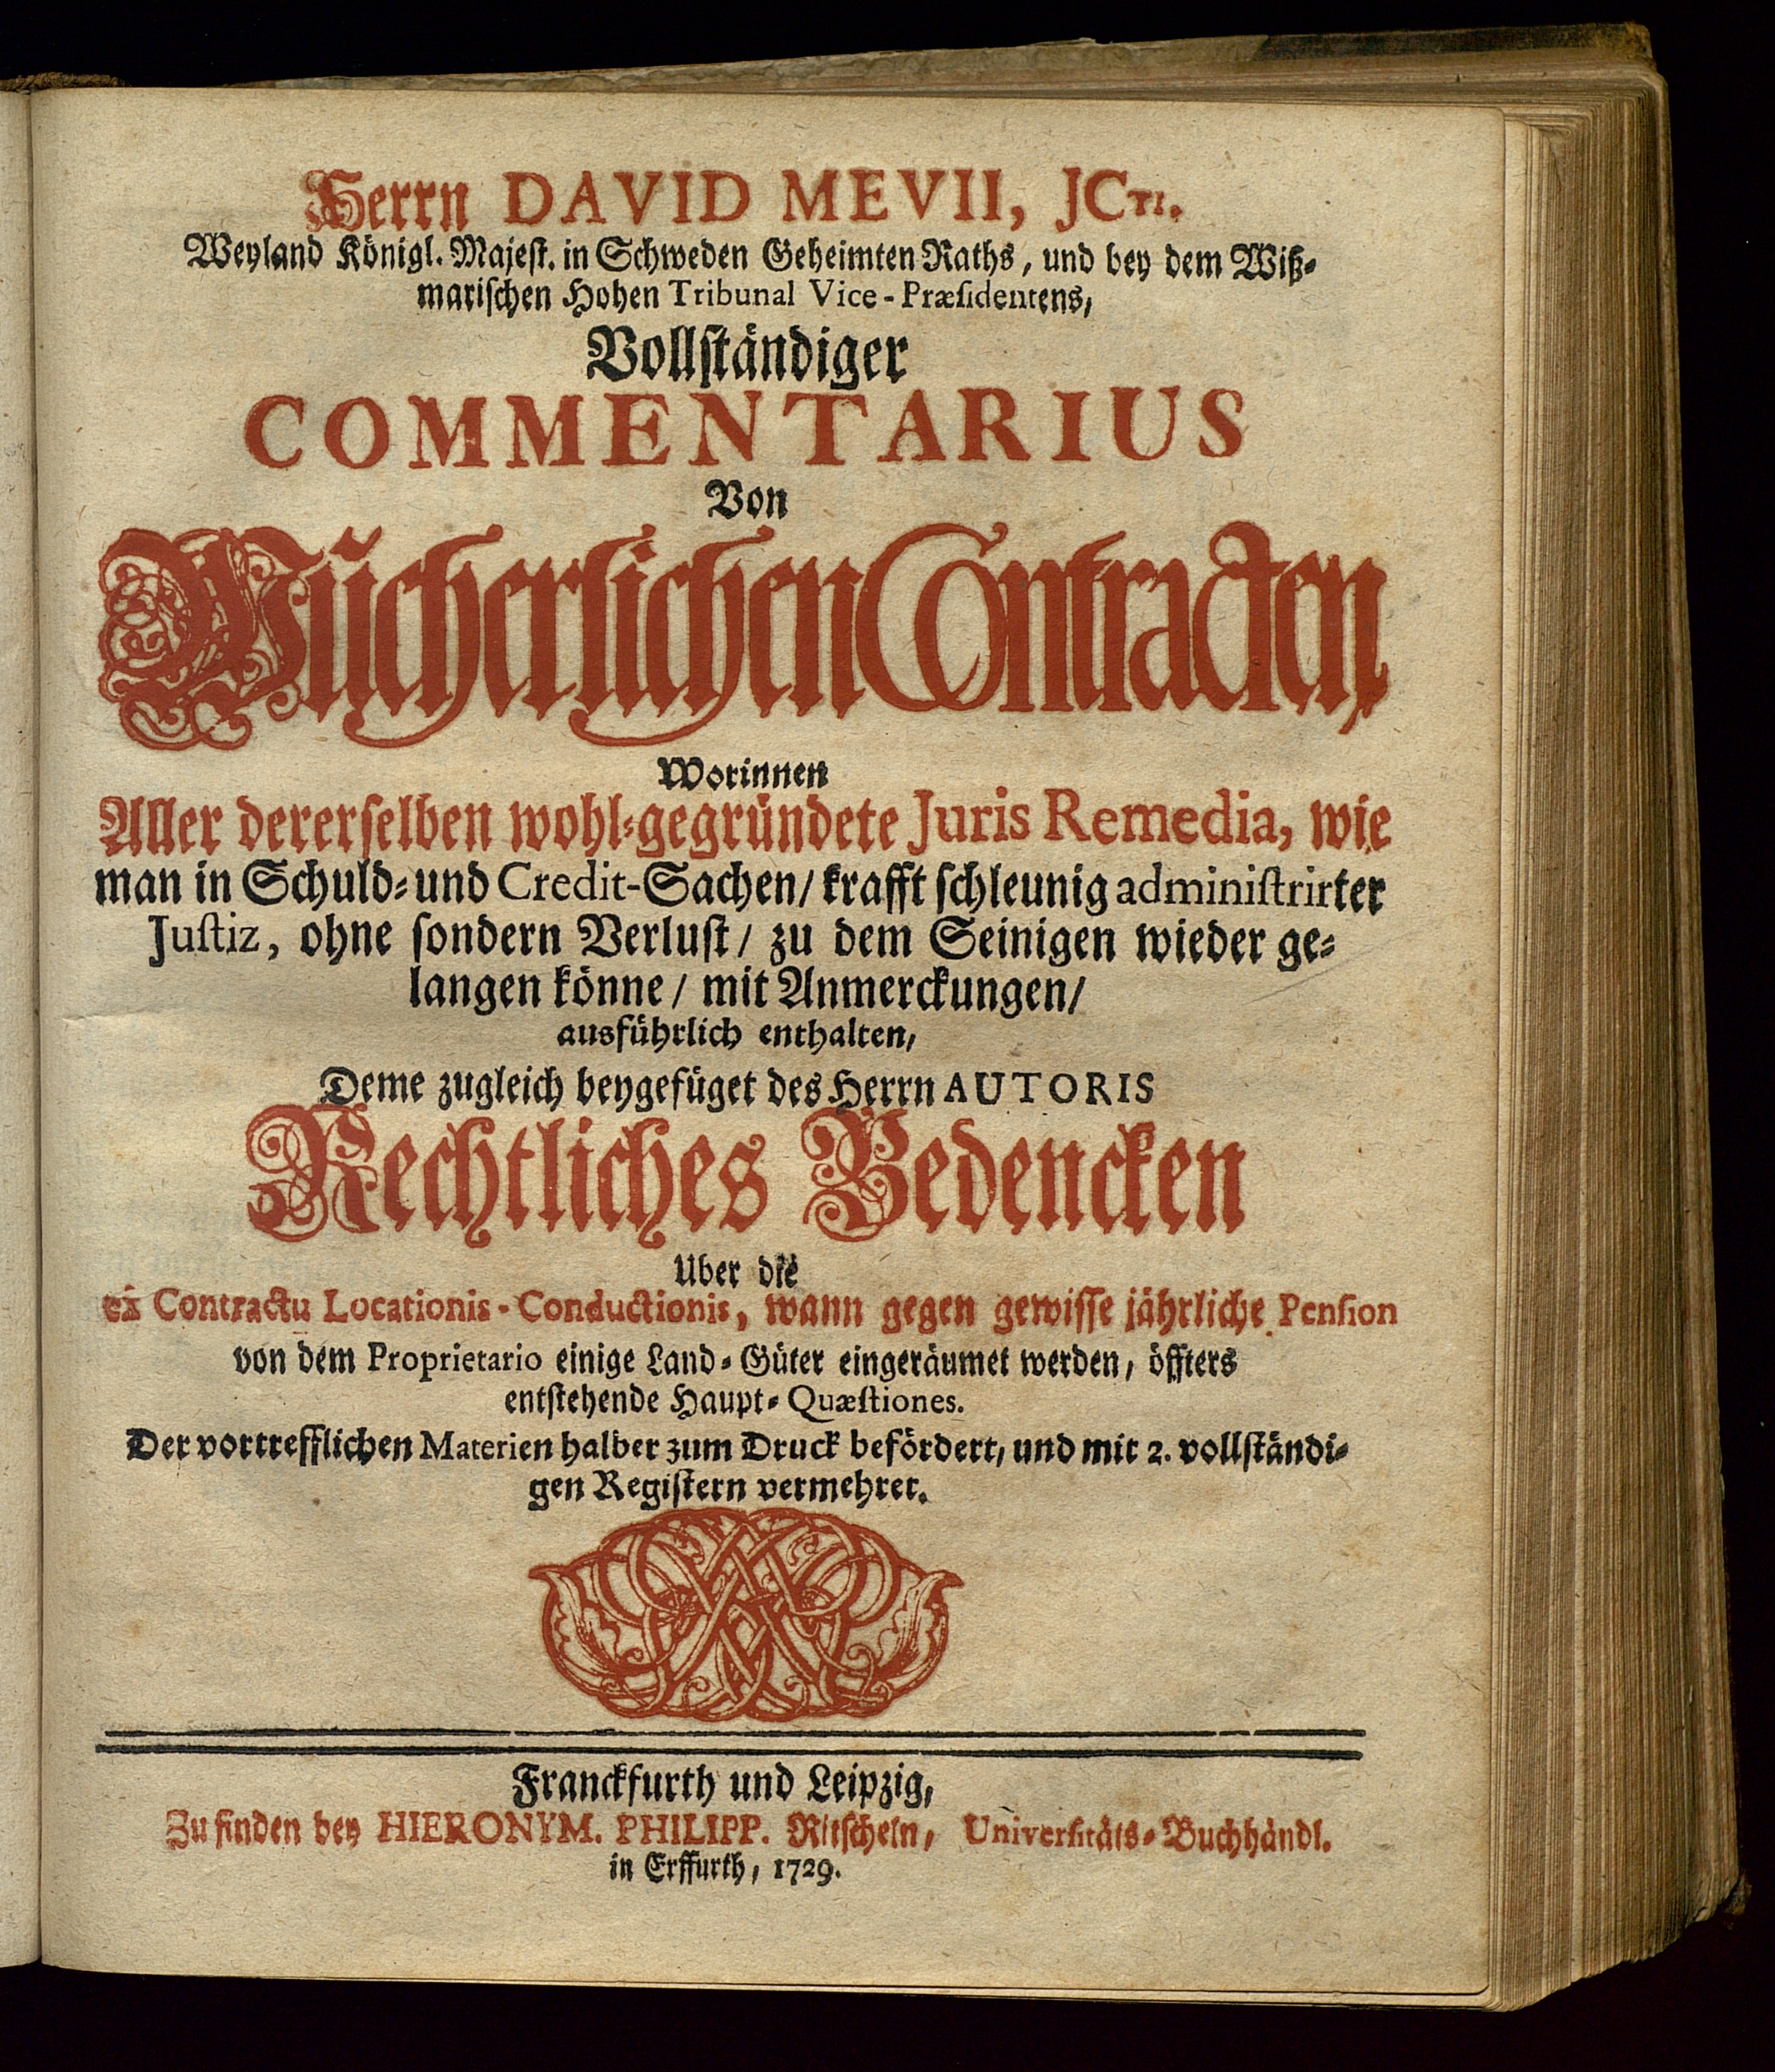 Herrn DAVID MEVII, JCTI.
Weyland Königl. Majest. in Schweden Geheimten Raths, und bey dem Wiß-
marischen Hohen Tribunal Vice-Præsidentens,
Vollständiger
COMMENTARIUS
Von
Wücherlichen Contracten,
Worinnen
Aller dererselben wohl-gegründete Juris Remedia, wie
man in Schuld- und Credit-Sachen/ krafft schleunig administrirter
Justiz, ohne sondern Verlust/ zu dem Seinigen wieder ge-
langen könne/ mit Anmerckungen/
ausführlich enthalten,
Deme zugleich beygefüget des Herrn AUTORIS
Rechtliches Bedencken
Uber die
ex Contractu Locationis-Conductionis, wann gegen gewisse jährliche Pension
von dem Proprietario einige Land-Güter eingeräumet werden, öffters
entstehende Haupt-Quæstiones.
Der vortrefflichen Materien halber zum Druck befördert, und mit 2. vollständi-
gen Registern vermehret.
Franckfurth und Leipzig,
Zu finden bey HIERONYM. PHILIPP. Ritscheln, Universitäts-Buchhändl.
in Erffurth, 1729.